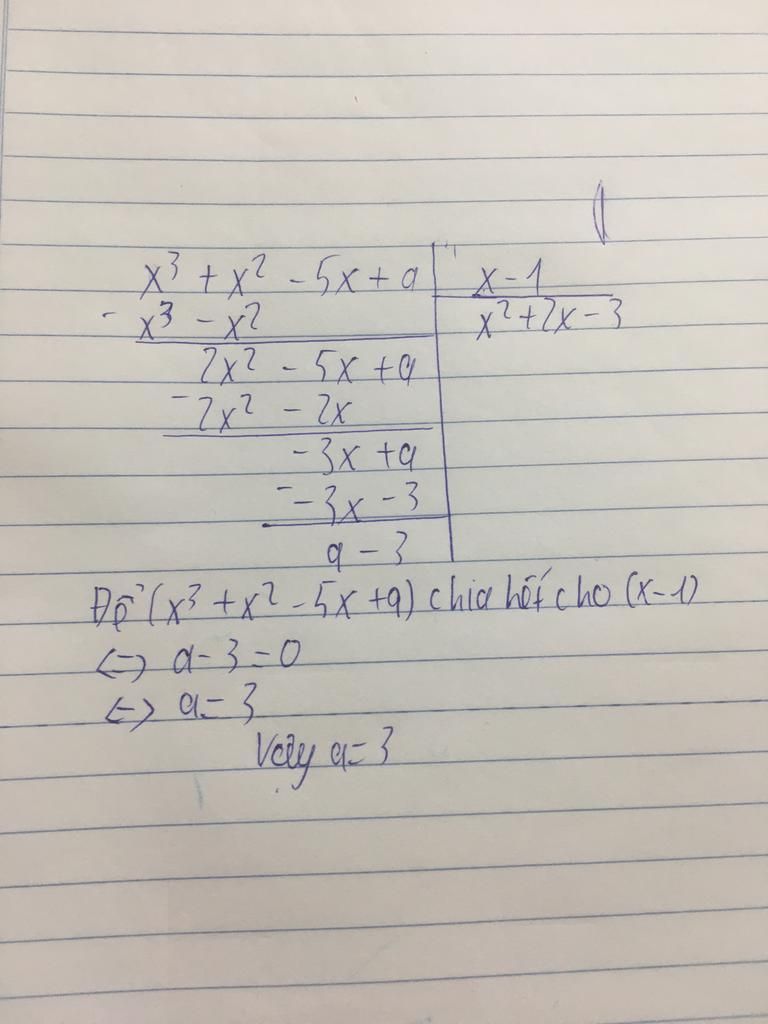 x³ + x² - 5x + a | x - 1
- x³ - x² | x² + 2x - 3
2x² - 5x + a
- 2x² - 2x
-3x + a
- -3x - 3
a - 3
Để (x³ + x² - 5x + a) chia hết cho (x-1)
<=> a - 3 = 0
<=> a = 3
Vậy a = 3